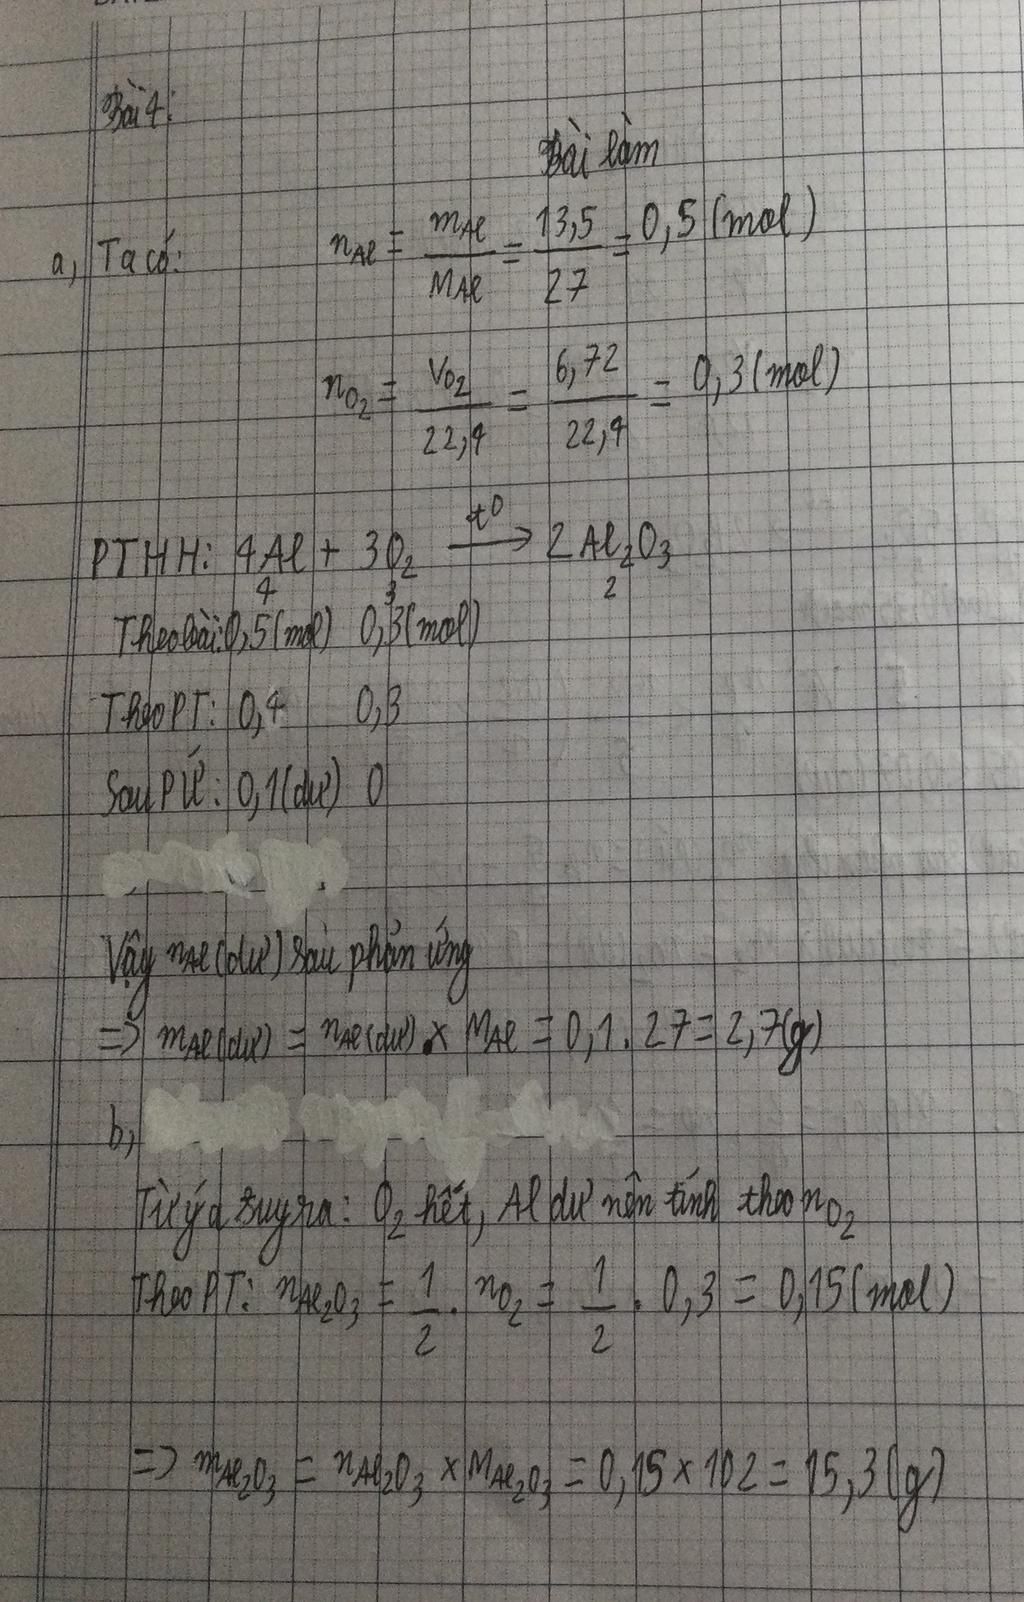 Bài 4:
Bài làm
a, Ta có: nAl = mAl / MAl = 13,5 / 27 = 0,5 (mol)
nO2 = VO2 / 22,4 = 6,72 / 22,4 = 0,3 (mol)
PTHH: 4Al + 3O2 —t⁰→ 2Al2O3
4 3 2
Theo bài: 0,5 (mol) 0,3 (mol)
Theo PT: 0,4 0,3
Sau PƯ: 0,1 (dư) 0
Vậy nAl (dư) sau phản ứng
=> mAl (dư) = nAl (dư) . x MAl = 0,1 . 27 = 2,7 (g)
b,
Từ ý a suy ra: O2 hết, Al dư nên tính theo nO2
Theo PT: nAl2O3 = 1/2 . nO2 = 1/2 . 0,3 = 0,15 (mol)
=> mAl2O3 = nAl2O3 x MAl2O3 = 0,15 x 102 = 15,3 (g)